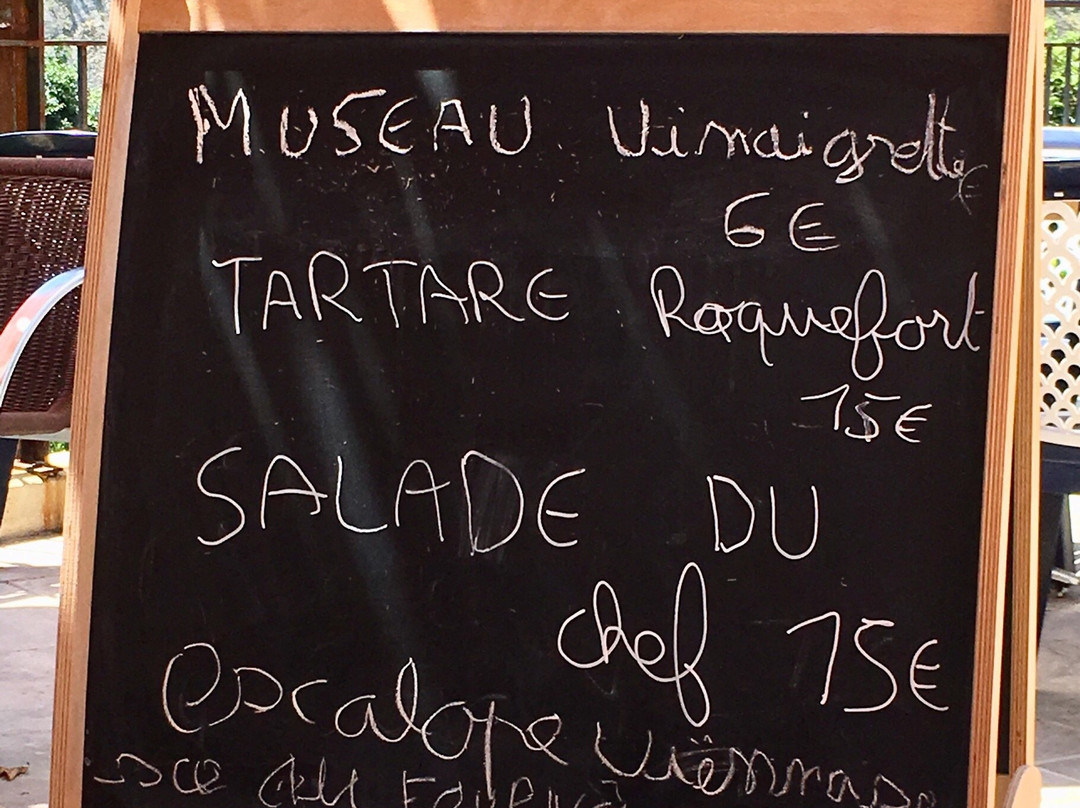 MUSEAU Vinaigrette
6€
TARTARE Roquefort
15€
SALADE DU
chef 15€
escalope